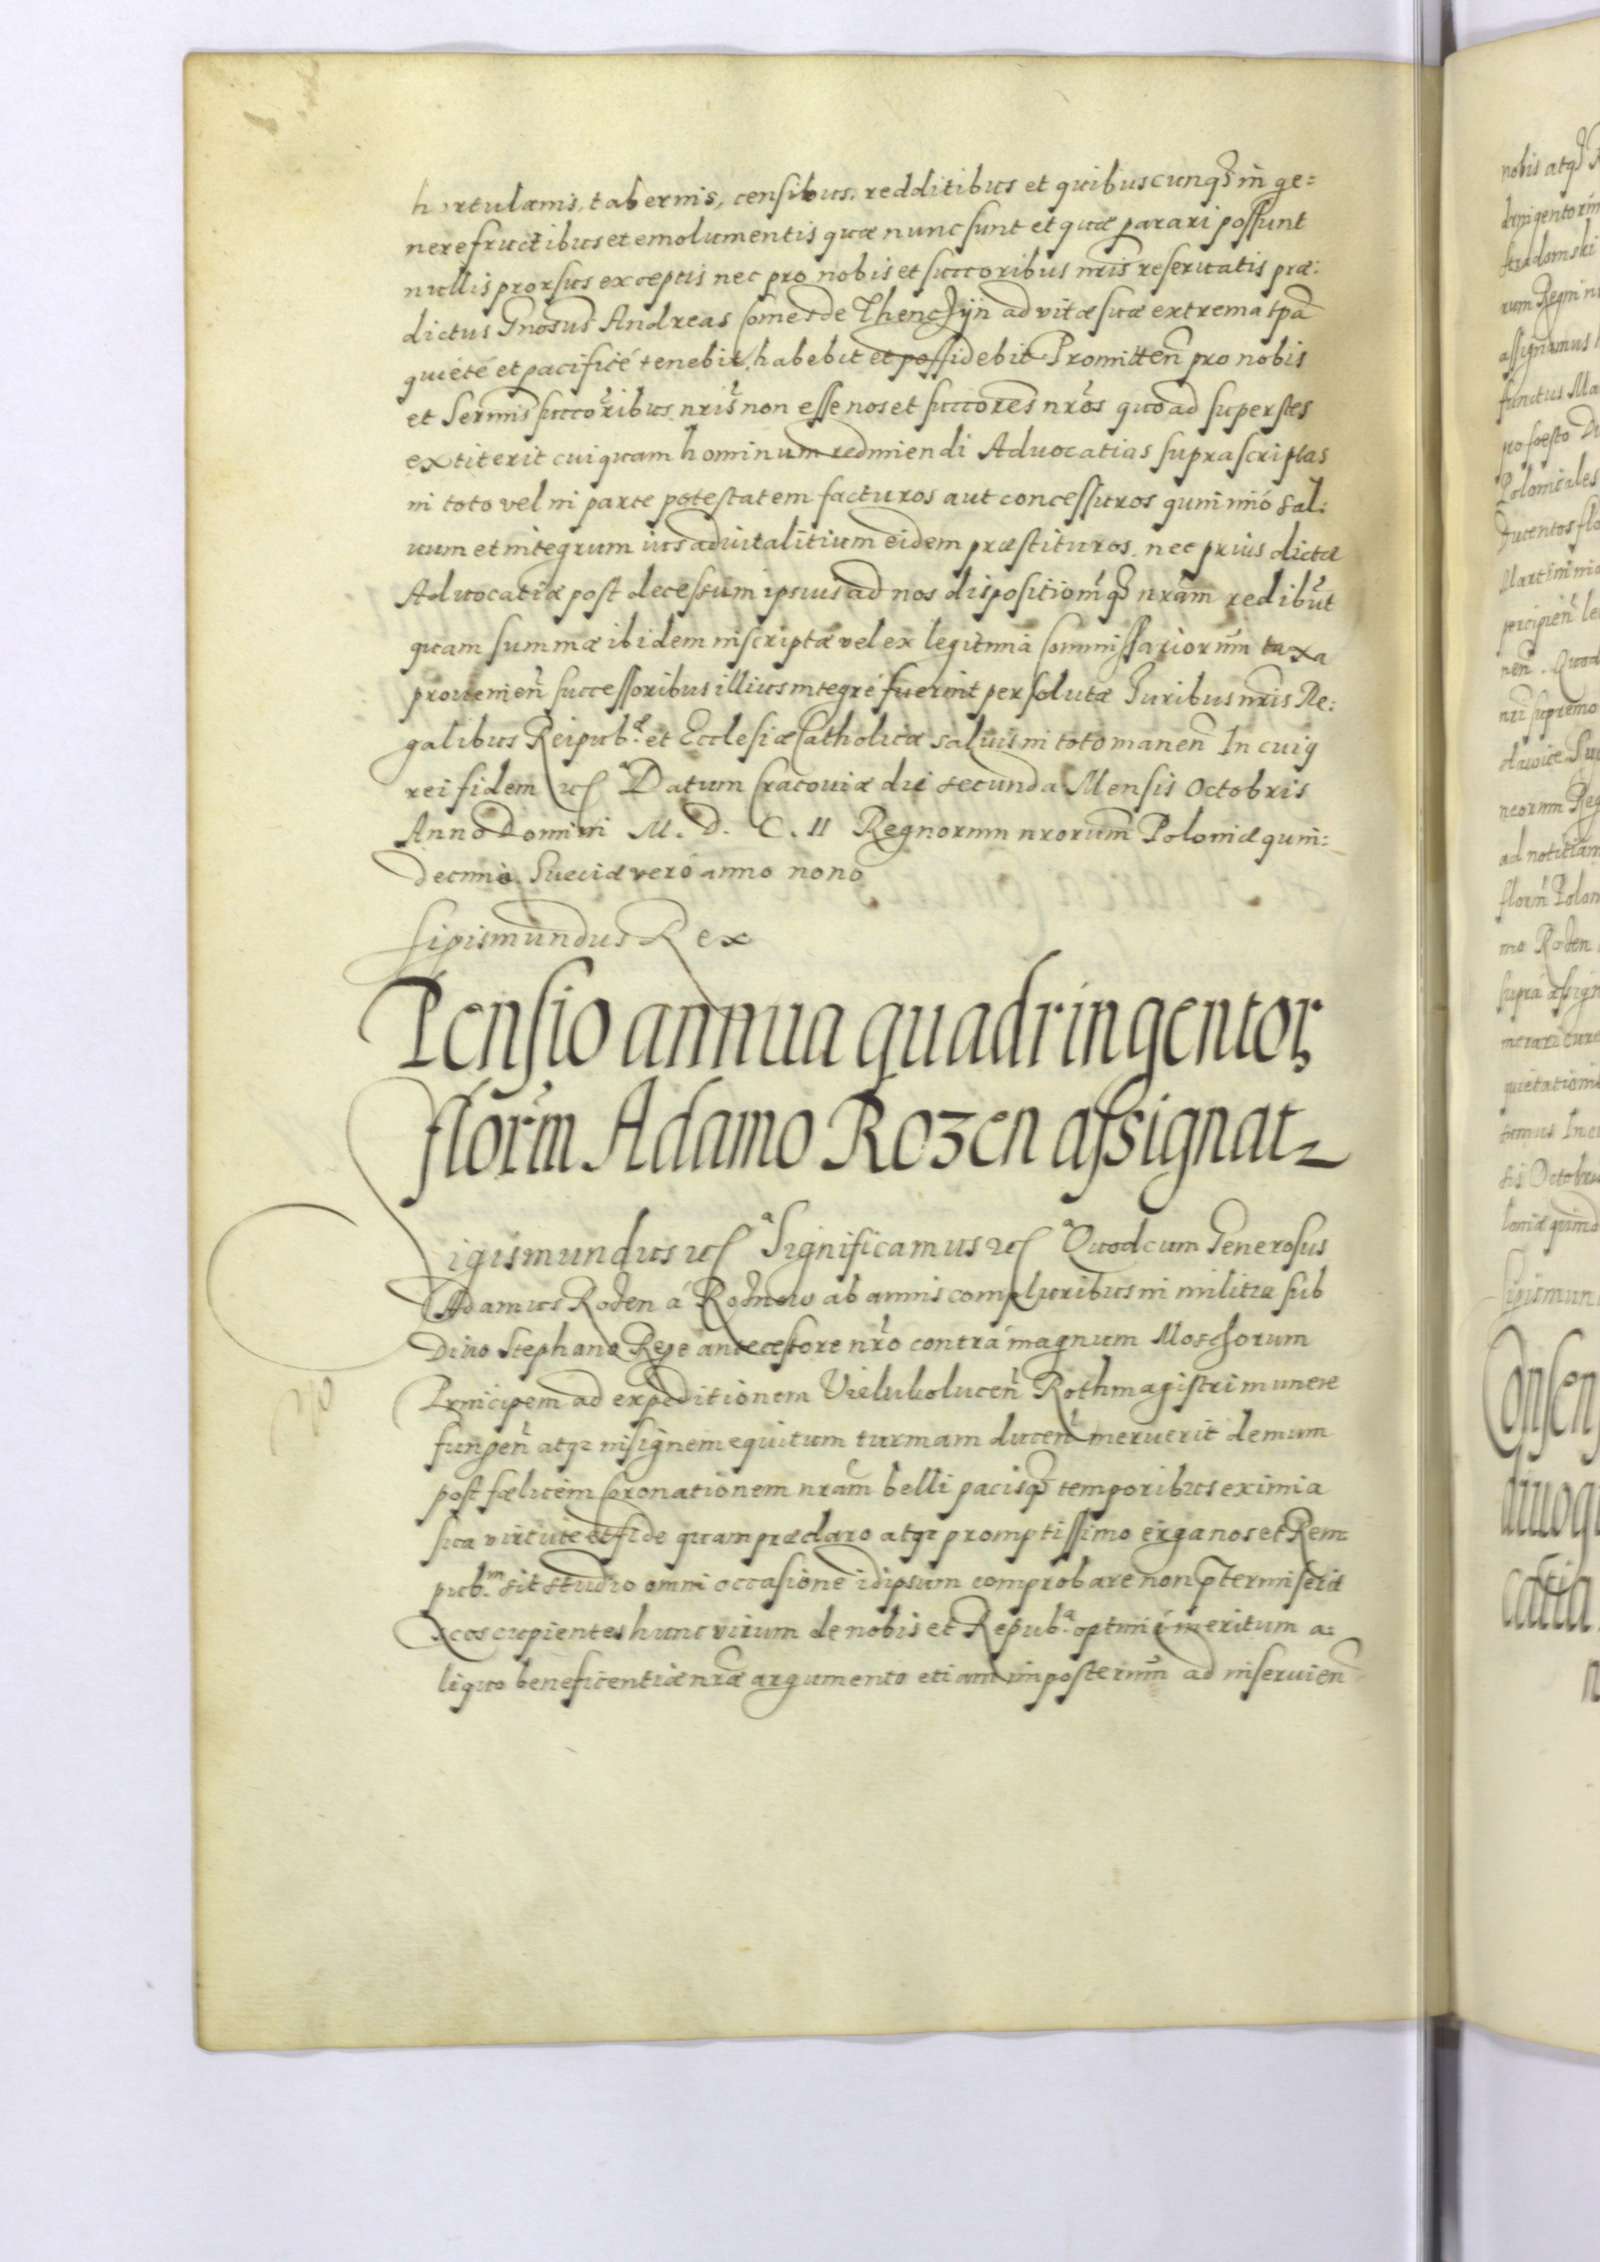 hortulanis, tabernis, censibus, redditibus et quibuscunq3 in ge:
nere fructibus et emolumentis quæ nunc sunt et quæ parari possunt
nullis prorsus exceptis nec pro nobis et succoribus nris reseruatis præ:
dictus Gnosus Andreas Comes de Thenczyn ad vitæ suæ extrema tpa
quiete et pacificé tenebit, habebit et possidebit Promitten pro nobis
et Sermis succoribus nris non esse nos et succores nros quoad superstes
extiterit cuiquam hominum redimendi Aduocatias suprascriptas
in toto vel in parte potestatem facturos aut concessuros quinimó sal:
uum et integrum ius aduitalitium eidem præstituros, nec prius dictæ
Aduocatiæ post decessum ipsius ad nos dispositiomq3 nram redibut
quam summæ ibidem inscriptæ vel ex legitima Commissariorum taxa
prouenien successoribus illius integré fuerint persolutæ Iuribus nris Re:
galibus Reipub.æ et Ecclesiæ Catholicæ saluis in toto manen In cuig
rei fidem etc̃ Datum Cracouiæ die secunda Mensis Octobris
Anno Domini M. D. C. II Regnorum nrorum Poloniæ quin:
decimo. Sueciæ veró anno nono
Sigismundus Rex
Pensio annua quadringentor
florm Adamo Rozen assignat
Sigismundus etc̃ Significamus etc̃ Quod cum Generosus
Adamus Roden á Rodnow ab annis compluribus in militia sub
Diuo Stephano Rege antecessore nro contrá magnum Moschorum
Principem ad expeditionem Vielukolucen Rothmagistri munere
fungen atq3 insignem equitum turmam ducen meruerit demum
post fælicem Coronationem nram belli pacisq3 temporibus eximia
sua virtute et fide quam præclaro atq3 promptissimo erga nos et Rem
pub.m sit studio omni occasione idipsum comprobare non ptermiserit
cupientes hunc virum de nobis et Repub.a optimé meritum a:
liquo beneficentiæ nræ argumento etiam imposterum ad inseruien
nobis atq3
assignamus
functus
Polonicales
Ducentos flo
supremo
ad notitiam
Roden
supra assign
quietationis
Octobris
Sigismun
Consen